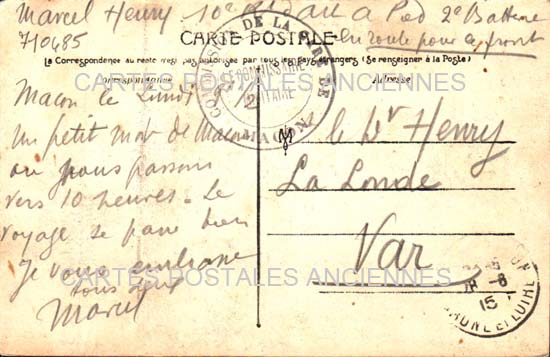 Marcel Henry 10e d'art à Pied 2e Batterie
710485
en route pour le front
CARTE POSTALE
La Correspondance au recto n'est pas autorisée par tous les pays étrangers (Se renseigner à la Poste)
Correspondance
Adresse
Macon le Lundi
Un petit mot de Macon
ou nous passons
vers 10 heures. Le
voyage se passe bien
Je vous embrasse
tous deux
Marcel
Mr Henry
La Londe
Var
DE LA GARE DE
COMMISSAIRE
MILITAIRE
MACON
8
15
SAONE ET LOIRE
CARTES POSTALES ANCIENNES
CARTES POSTALES ANCIENNES